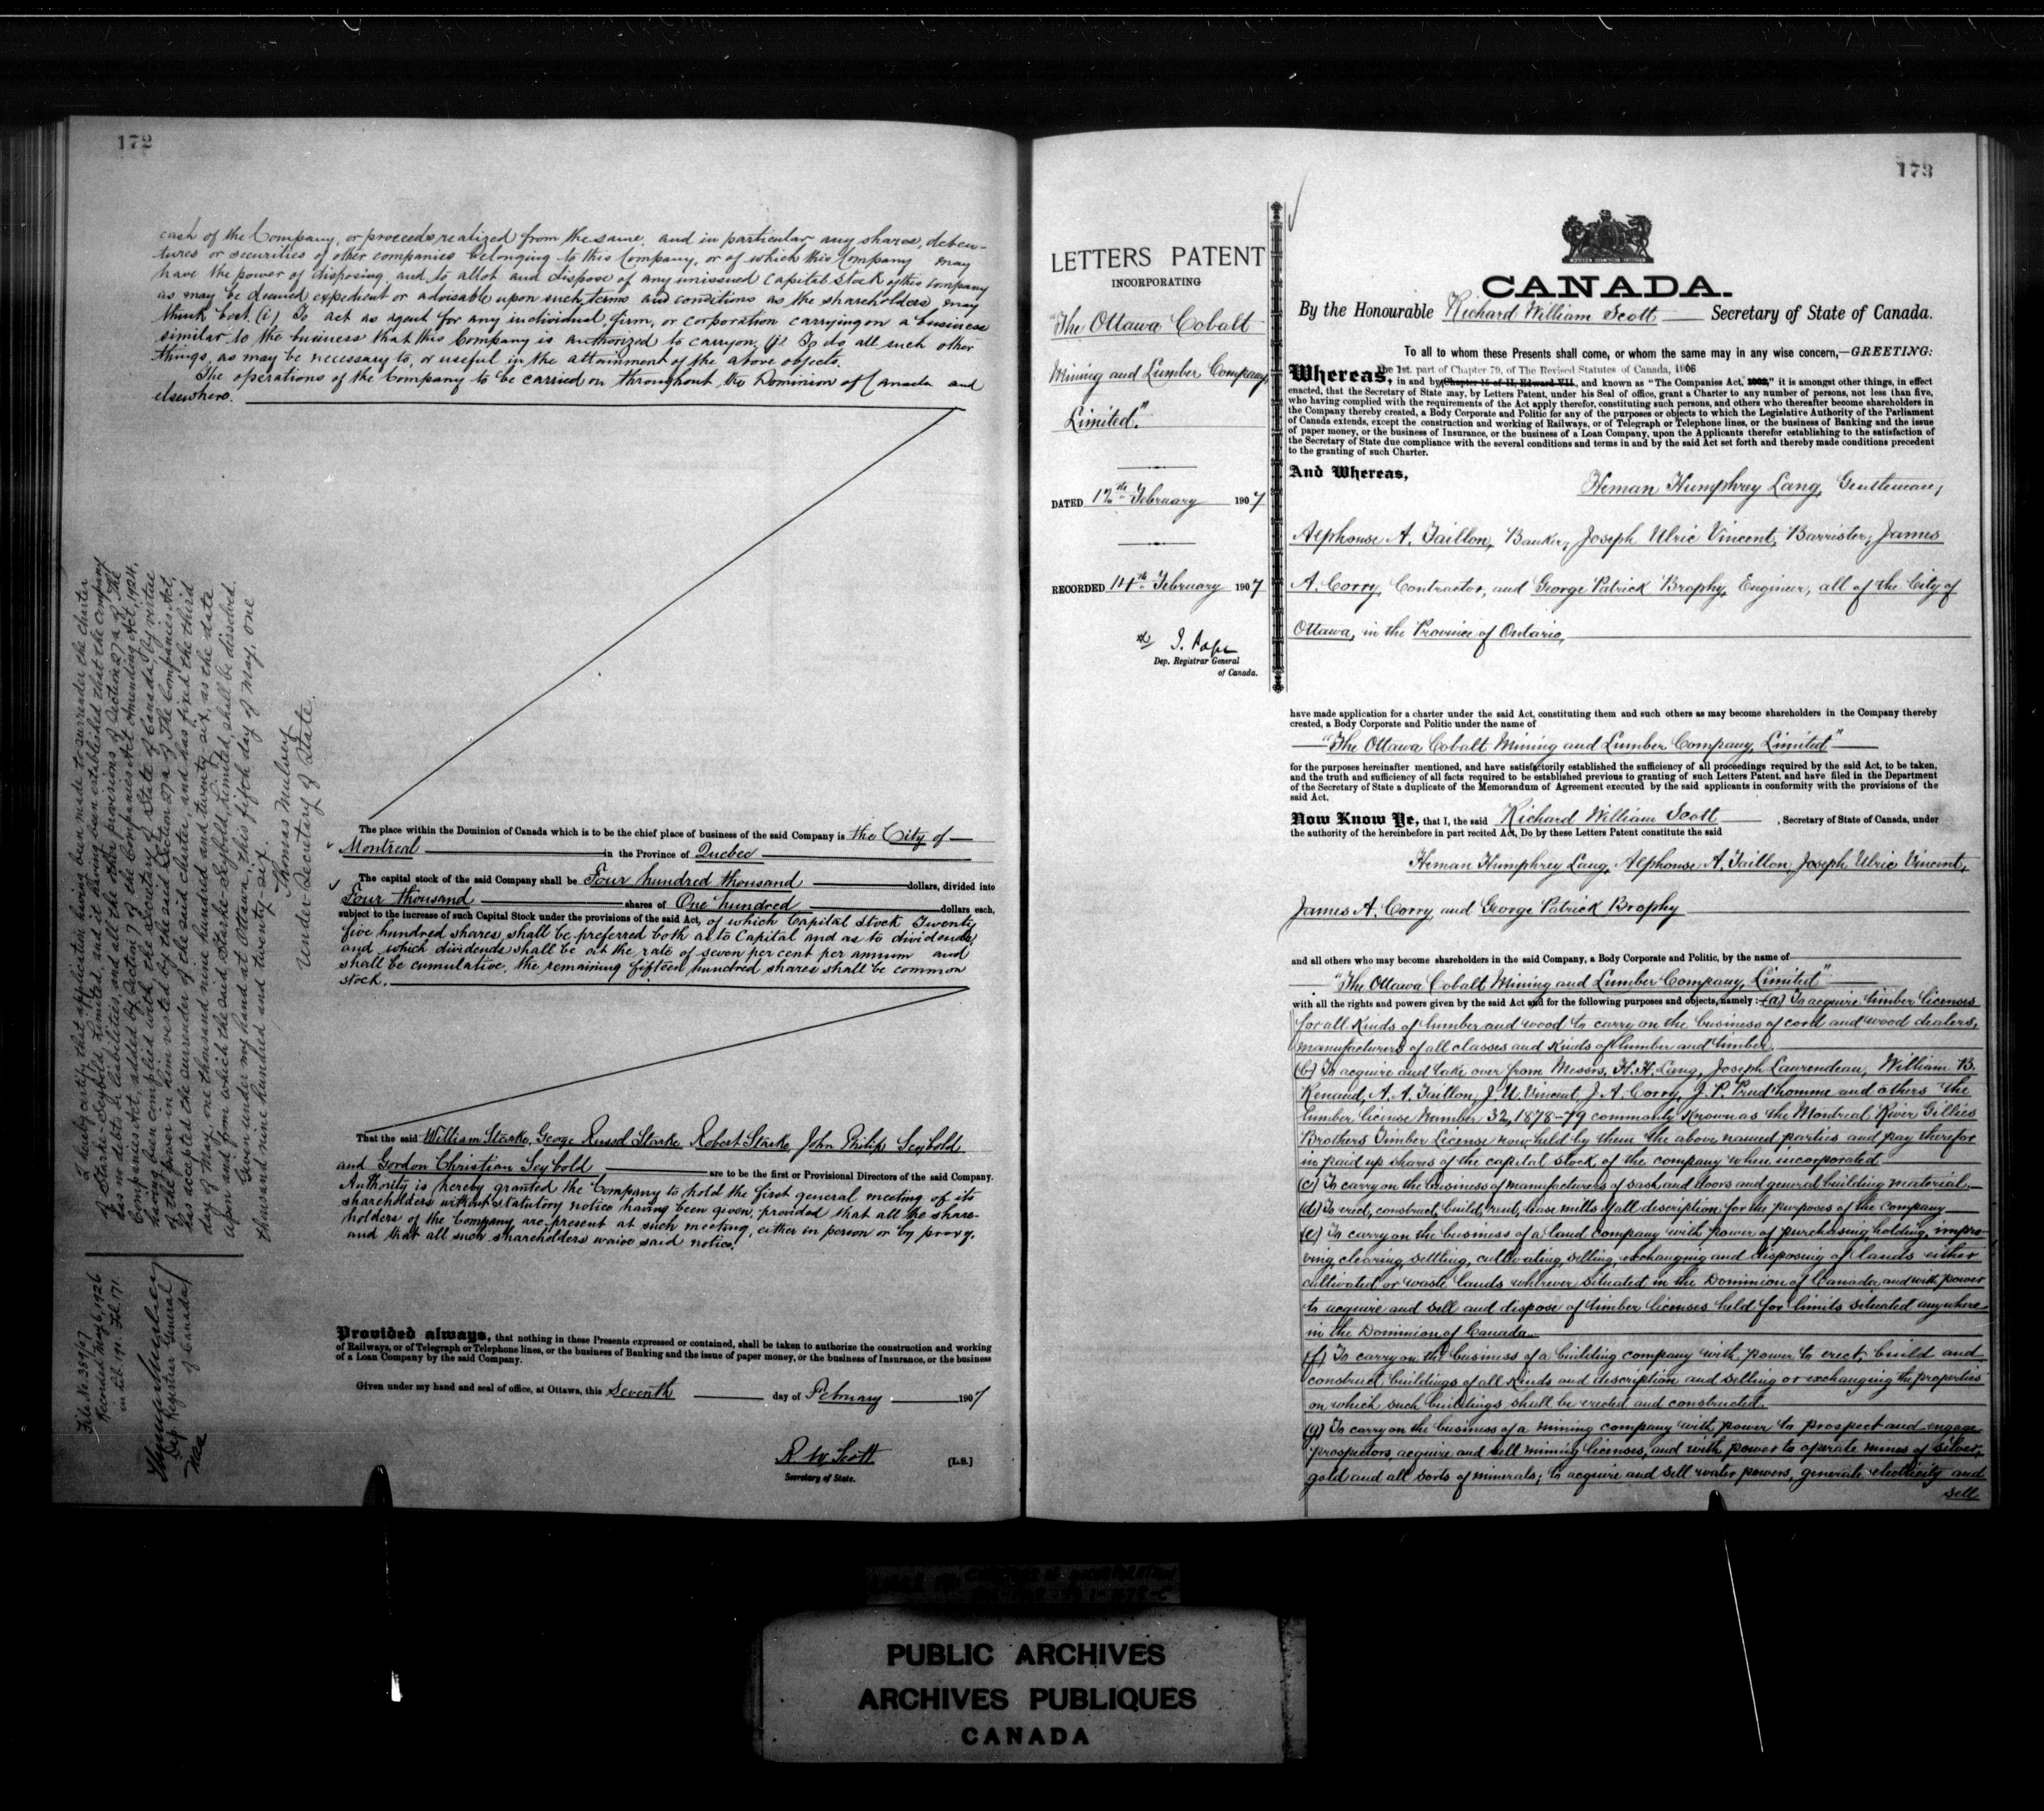 172
cash of the Company, or proceeds realized from the same, and in particular any shares, deben-
tures or securities of other companies belonging to this Company, or of which this Company may
have the power of disposing, and to allot and dispose of any unissued capital stock of this Company
as may be deemed expedient or advisable upon such terms and conditions as the shareholders may
think best. (i) To act as agent for any individual, firm, or corporation carrying on a business
similar to the business that this Company is authorized to carry on. (j) To do all such other
things, as may be necessary to, or useful in the attainment of the above objects.
The operations of the Company to be carried on throughout the Dominion of Canada and
elsewhere.
The place within the Dominion of Canada which is to be the chief place of business of the said Company is the City of
Montreal in the Province of Quebec
The capital stock of the said Company shall be Four hundred thousand dollars, divided into
Four thousand shares of One hundred dollars each,
subject to the increase of such Capital Stock under the provisions of the said Act, of which Capital Stock Twenty
five hundred shares shall be preferred both as to Capital and as to dividends,
and which dividends shall be at the rate of seven per cent per annum and
shall be cumulative, the remaining fifteen hundred shares shall be common
stock.
That the said William Starke, George Russel Starke, Robert Starke, John Philip Seybold
and Gordon Christian Seybold are to be the first or Provisional Directors of the said Company.
Authority is hereby granted the Company to hold the first general meeting of its
shareholders without statutory notice having been given, provided that all the share-
holders of the Company are present at such meeting, either in person or by proxy,
and that all such shareholders waive said notice.
Provided always, that nothing in these Presents expressed or contained, shall be taken to authorize the construction and working
of Railways, or of Telegraph or Telephone lines, or the business of Banking and the issue of paper money, or the business of Insurance, or the business
of a Loan Company by the said Company.
Given under my hand and seal of office, at Ottawa, this Seventh day of February 1907
R W Scott [L.S.]
Secretary of State.
I hereby certify that application having been made to surrender the charter
of Starke-Seybold, Limited, and it having been established that the Company
has no debts or liabilities, and all the other provisions of Section 27a of The
Companies Act, added by Section 7 of the Companies Act Amending Act, 1924,
having been complied with, the Secretary of State of Canada, by virtue
of the power in him vested by the said Section 27a of The Companies Act,
has accepted the surrender of the said charter, and has fixed the third
day of May, one thousand nine hundred and twenty-six, as the date
upon and from which the said Starke-Seybold, Limited, shall be dissolved.
Given under my hand at Ottawa, this fifth day of May, one
thousand nine hundred and twenty-six.
Thomas Mulvey
Under-Secretary of State.
File No 35997
Recorded May 6, 1926
in Lib. 191. Fol. 171.
Dep Registrar General
of Canada
173
LETTERS PATENT
INCORPORATING
"The Ottawa Cobalt
Mining and Lumber Company,
Limited."
DATED 12th February 1907
RECORDED 14th February 1907
Dep. Registrar General
of Canada.
CANADA.
By the Honourable Richard William Scott Secretary of State of Canada.
To all to whom these Presents shall come, or whom the same may in any wise concern,—GREETING:
the 1st. part of Chapter 79, of The Revised Statutes of Canada, 1906
Whereas, in and by Chapter 15 of II, Edward VII, and known as "The Companies Act, 1902," it is amongst other things, in effect
enacted, that the Secretary of State may, by Letters Patent, under his Seal of office, grant a Charter to any number of persons, not less than five,
who having complied with the requirements of the Act apply therefor, constituting such persons, and others who thereafter become shareholders in
the Company thereby created, a Body Corporate and Politic for any of the purposes or objects to which the Legislative Authority of the Parliament
of Canada extends, except the construction and working of Railways, or of Telegraph or Telephone lines, or the business of Banking and the issue
of paper money, or the business of Insurance, or the business of a Loan Company, upon the Applicants therefor establishing to the satisfaction of
the Secretary of State due compliance with the several conditions and terms in and by the said Act set forth and thereby made conditions precedent
to the granting of such Charter.
And Whereas,
Heman Humphrey Lang, Gentleman,
Alphonse A. Taillon, Banker, Joseph Ulric Vincent, Barrister, James
A. Corry, Contractor, and George Patrick Brophy, Engineer, all of the City of
Ottawa, in the Province of Ontario,
have made application for a charter under the said Act, constituting them and such others as may become shareholders in the Company thereby
created, a Body Corporate and Politic under the name of
"The Ottawa Cobalt Mining and Lumber Company, Limited"
for the purposes hereinafter mentioned, and have satisfactorily established the sufficiency of all proceedings required by the said Act, to be taken,
and the truth and sufficiency of all facts required to be established previous to granting of such Letters Patent, and have filed in the Department
of the Secretary of State a duplicate of the Memorandum of Agreement executed by the said applicants in conformity with the provisions of the
said Act.
Now Know Ye, that I, the said Richard William Scott , Secretary of State of Canada, under
the authority of the hereinbefore in part recited Act, Do by these Letters Patent constitute the said
Heman Humphrey Lang, Alphonse A. Taillon, Joseph Ulric Vincent,
James A. Corry and George Patrick Brophy
and all others who may become shareholders in the said Company, a Body Corporate and Politic, by the name of
"The Ottawa Cobalt Mining and Lumber Company, Limited"
with all the rights and powers given by the said Act and for the following purposes and objects, namely :— (a) To acquire timber licenses
for all kinds of lumber and wood to carry on the business of cord and wood dealers,
manufacturers of all classes and kinds of lumber and timber.
(b) To acquire and take over from Messrs. H. H. Lang, Joseph Laurendeau, William B.
Renaud, A. A. Taillon, J. U. Vincent, J. A. Corry, J. P. Prud'homme and others the
lumber license Number 32, 1878-79 commonly known as the Montreal River Gillies
Brothers Timber License now held by them the above named parties and pay therefor
in paid up shares of the capital stock of the company when incorporated
(c) To carry on the business of manufacturers of sash and doors and general building material.
(d) To erect, construct, build, rent, lease mills of all description for the purposes of the company
(e) To carry on the business of a land company with power of purchasing, holding, impro-
ving, clearing, settling, cultivating, selling, exchanging and disposing of lands either
cultivated or waste lands wherever situated in the Dominion of Canada and with power
to acquire and sell and dispose of timber licenses held for limits situated anywhere
in the Dominion of Canada.
(f) To carry on the business of a building company with power to erect, build and
construct buildings of all kinds and description and selling or exchanging the properties
on which such buildings shall be erected and constructed.
(g) To carry on the business of a mining company with power to prospect and engage
prospectors, acquire and sell mining licenses, and with power to operate mines of silver,
gold and all sorts of minerals; to acquire and sell water powers, generate electricity and
sell
PUBLIC ARCHIVES
ARCHIVES PUBLIQUES
CANADA